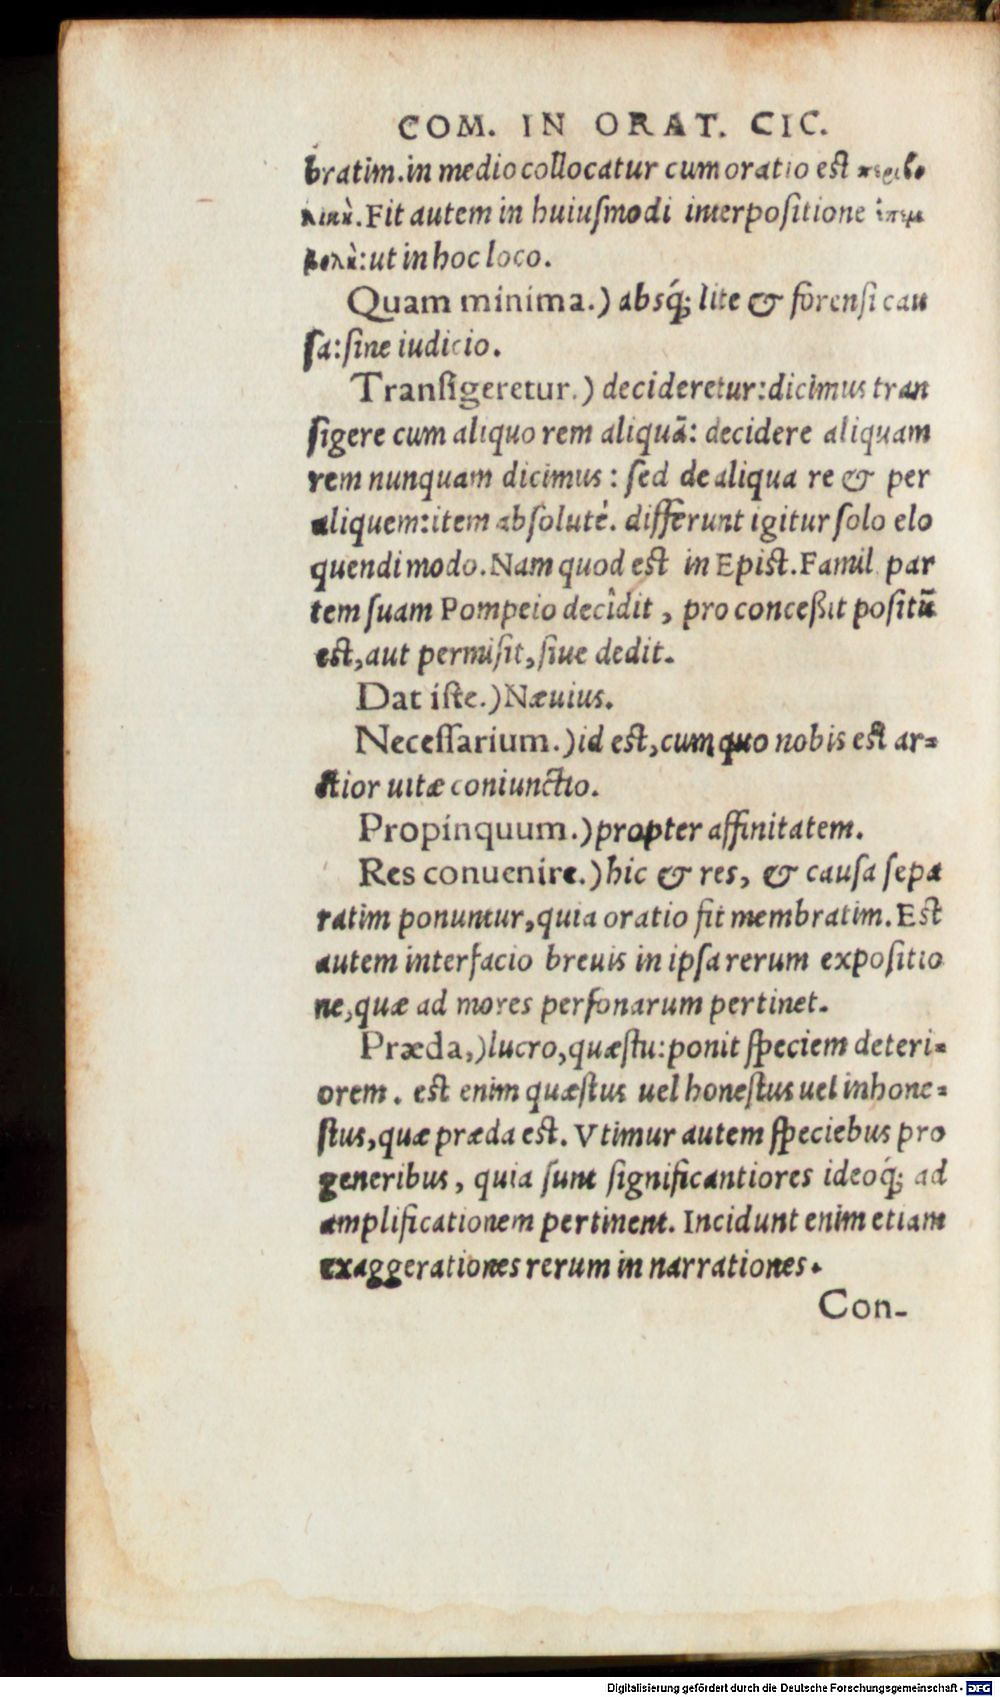 COM. IN ORAT. CIC.
bratim. in medio collocatur cum oratio est
Fit autem in huiusmodi interpositione
ut in hoc loco.
Quam minima.) absq́; lite & forensi cau
sa: sine iudicio.
Transigeretur.) decideretur: dicimus tran
sigere cum aliquo rem aliquā: decidere aliquam
rem nunquam dicimus: sed de aliqua re & per
aliquem: item absoluté. differunt igitur solo elo
quendi modo. Nam quod est in Epist. Famil par
tem suam Pompeio decîdit, pro conceßit positū
est, aut permisit, siue dedit.
Dat iste.) Næuius.
Necessarium.) id est, cum quo nobis est ar=
ctior uitæ coniunctio.
Propinquum.) propter affinitatem.
Res conuenire.) hic & res, & causa sepa
ratim ponuntur, quia oratio fit membratim. Est
autem interfacio breuis in ipsa rerum expositio
ne, quæ ad mores personarum pertinet.
Præda,) lucro, quæstu: ponit speciem deteri=
orem. est enim quæstus uel honestus uel inhone=
stus, quæ præda est. Vtimur autem speciebus pro
generibus, quia sunt significantiores ideoq́; ad
amplificationem pertinent. Incidunt enim etiam
exaggerationes rerum in narrationes.
Con-
Digitalisierung gefördert durch die Deutsche Forschungsgemeinschaft - DFG